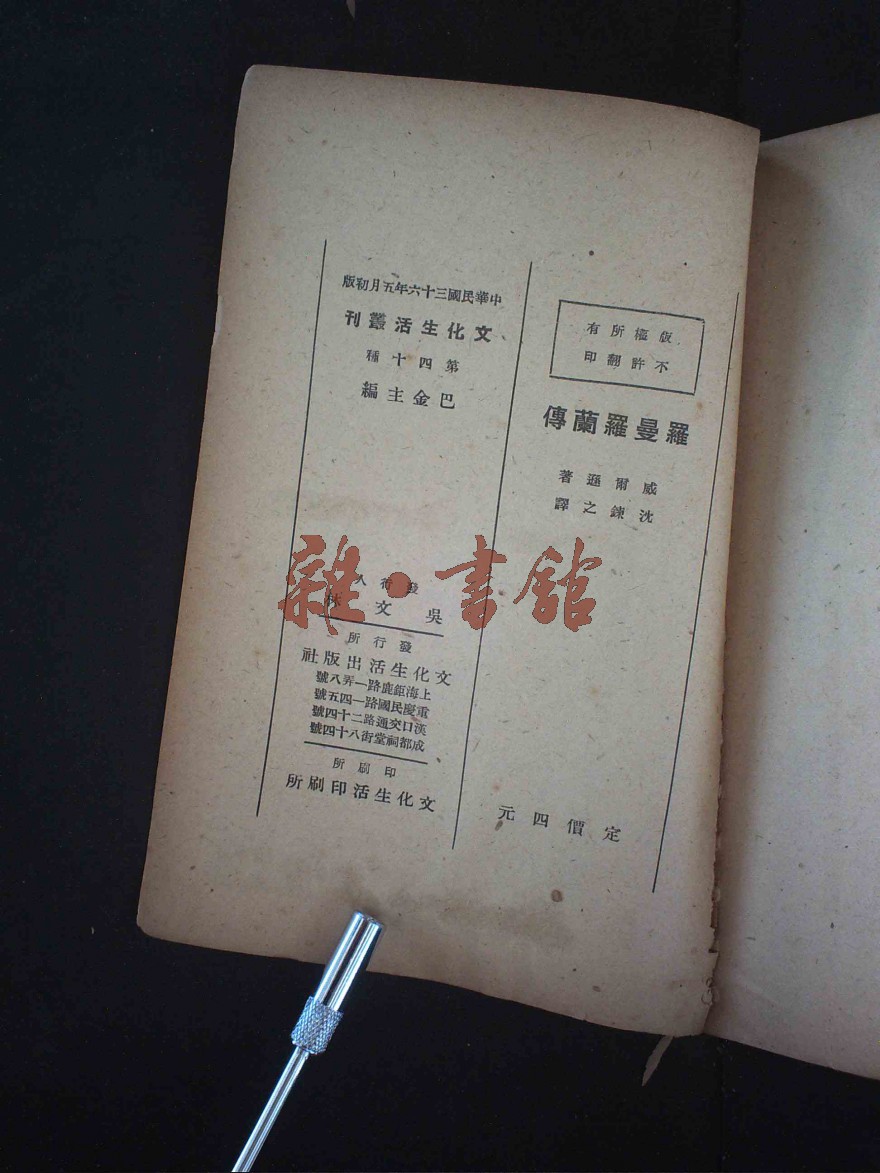 版權所有
不許翻印
羅曼羅蘭傳
威爾遜著
沈鍊之譯
定價四元
中華民國三十六年五月初版
文化生活叢刊
第四十種
巴金主編
發行人
吳文林
發行所
文化生活出版社
上海鉅鹿路一弄八號
重慶民國路一四五號
漢口交通路二十四號
成都祠堂街八十四號
印刷所
文化生活印刷所
雜·書館